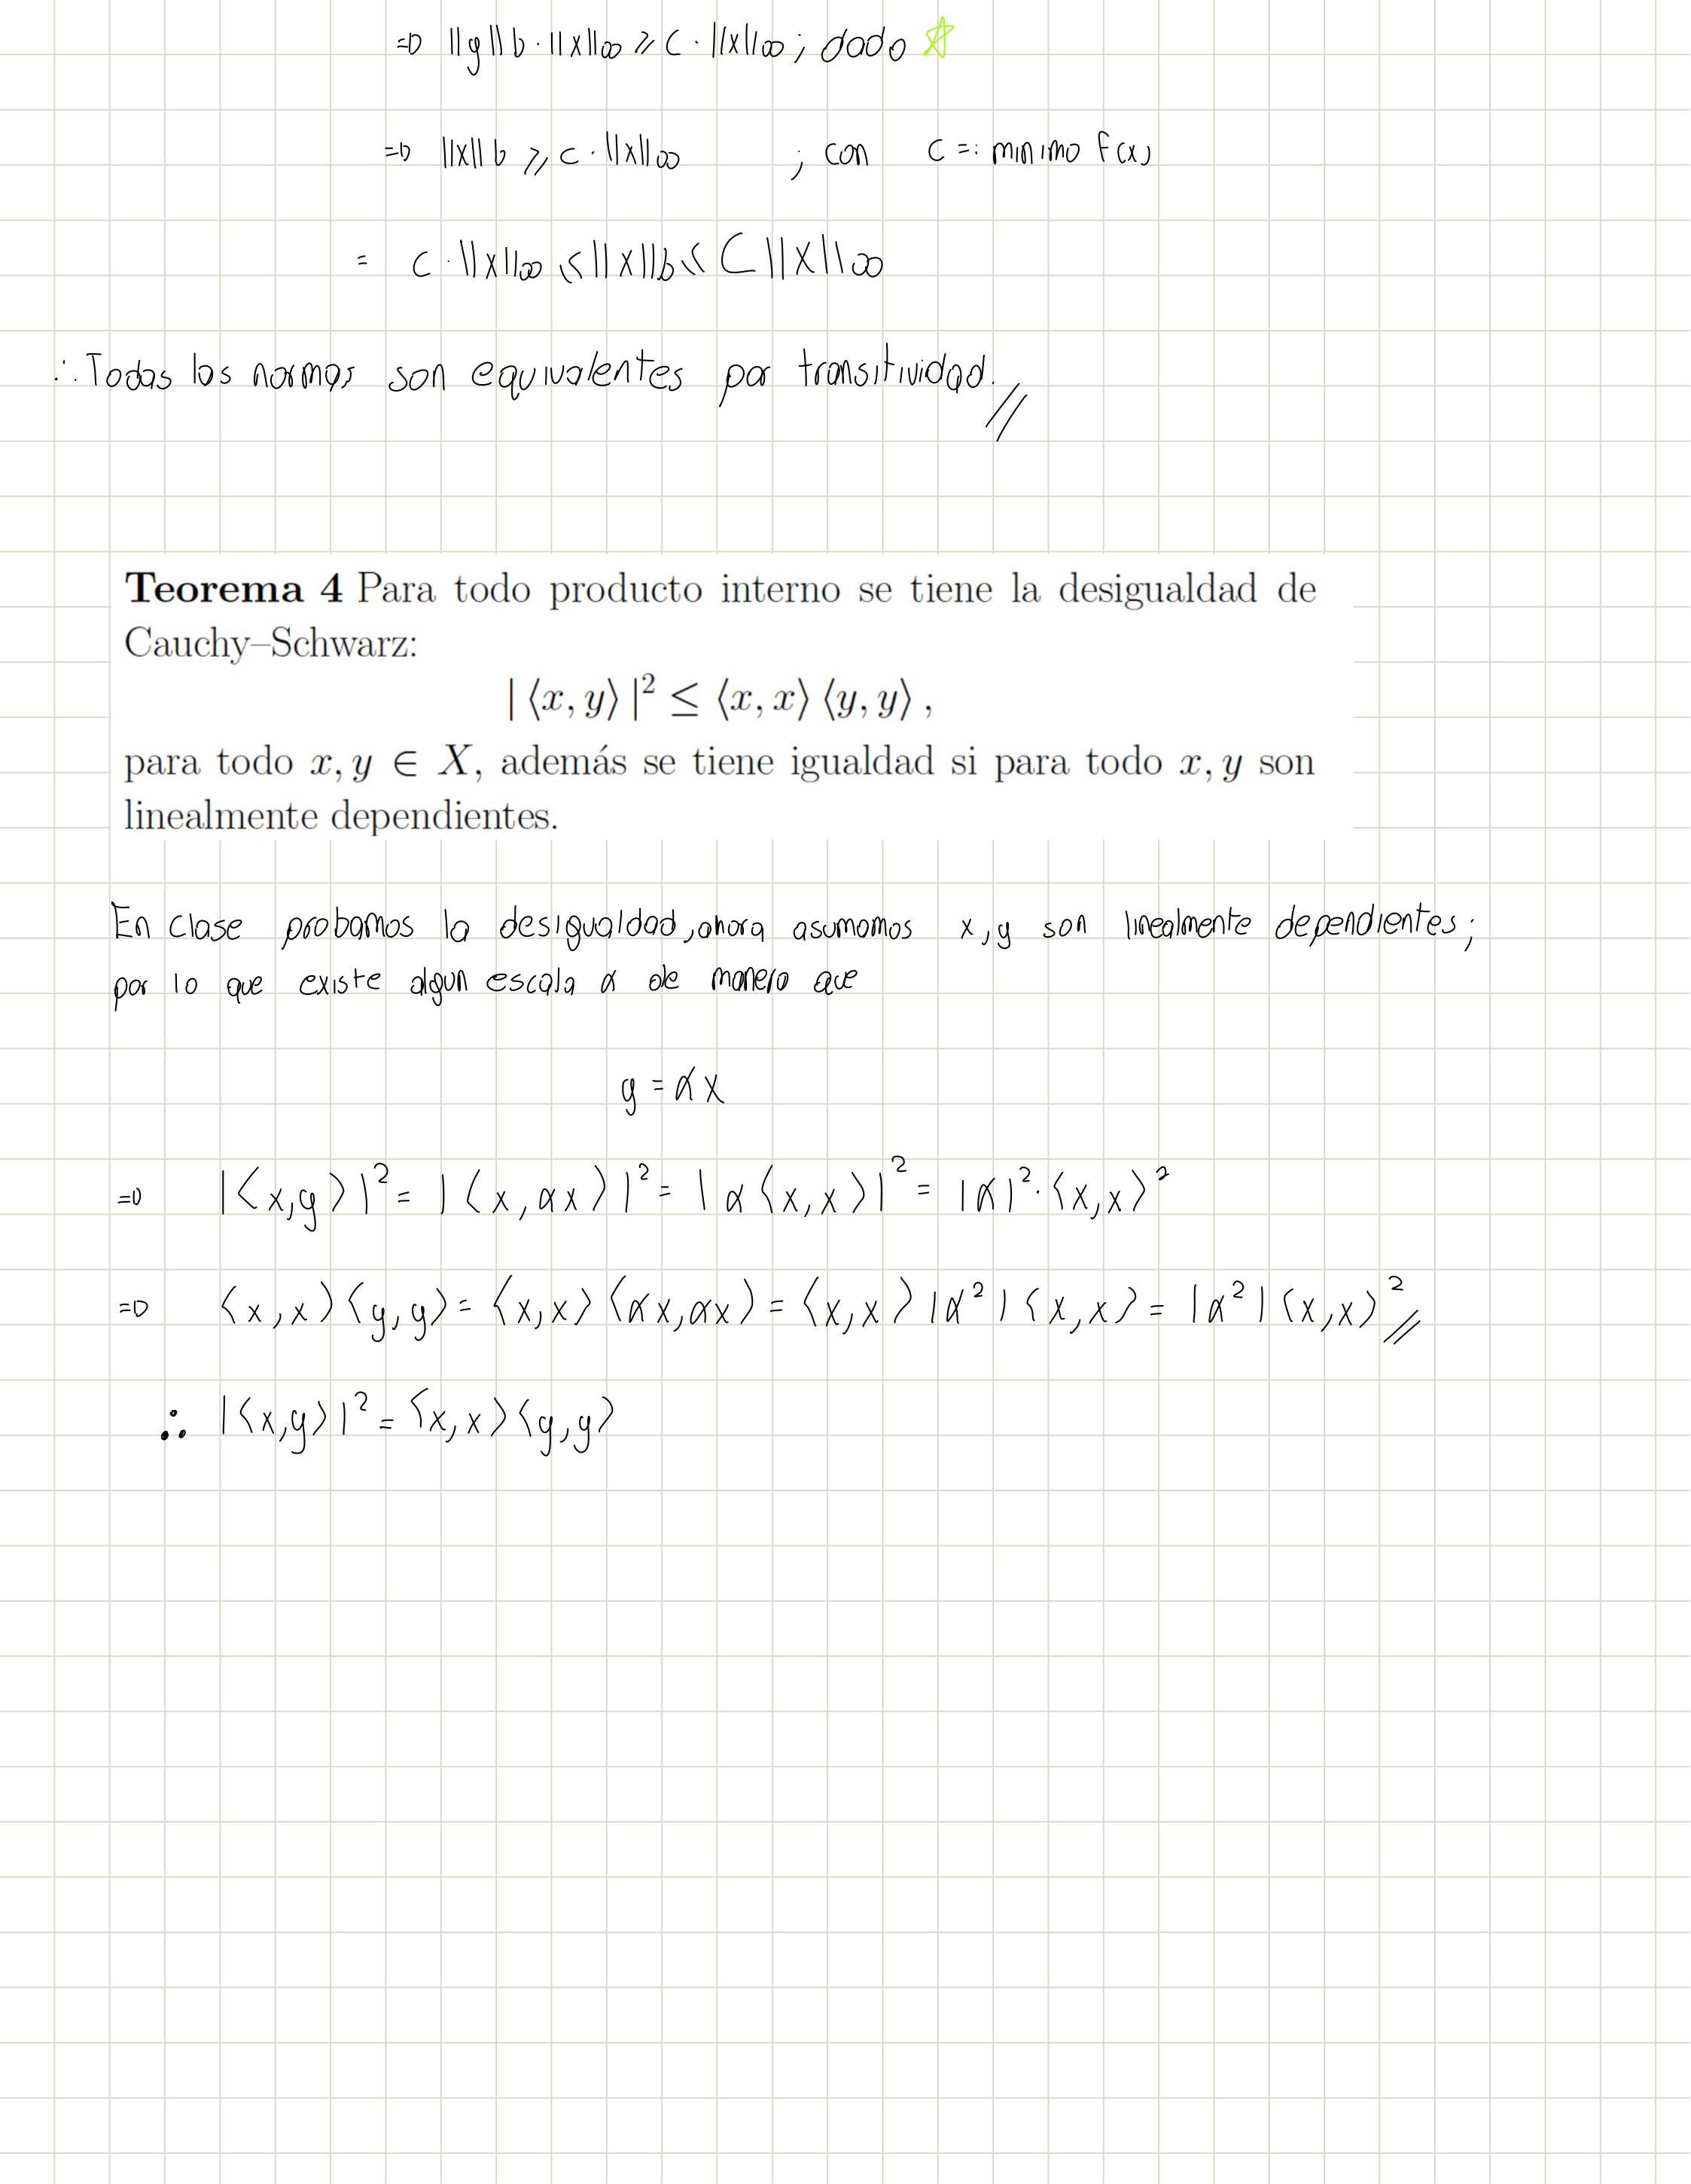 =D ||y||b · ||x||∞ ≥ c · ||x||∞ ; dado ☆
=D ||x||b ≥ c · ||x||∞ ; con C =: minimo f(x)
= c · ||x||∞ ≤ ||x||b ≤ C ||x||∞
∴ Todas las normas son equivalentes por transitividad. //
Teorema 4 Para todo producto interno se tiene la desigualdad de
Cauchy–Schwarz:
| ⟨x, y⟩ |² ≤ ⟨x, x⟩ ⟨y, y⟩ ,
para todo x, y ∈ X, además se tiene igualdad si para todo x, y son
linealmente dependientes.
En clase probamos la desigualdad, ahora asumamos x, y son linealmente dependientes;
por lo que existe algun escala α de manera que
y = αx
=D |⟨x,y⟩|² = |⟨x, αx⟩|² = |α⟨x,x⟩|² = |α|² · ⟨x,x⟩²
=D ⟨x,x⟩⟨y,y⟩ = ⟨x,x⟩⟨αx,αx⟩ = ⟨x,x⟩|α²|⟨x,x⟩ = |α²|⟨x,x⟩² //
∴ |⟨x,y⟩|² = ⟨x,x⟩⟨y,y⟩